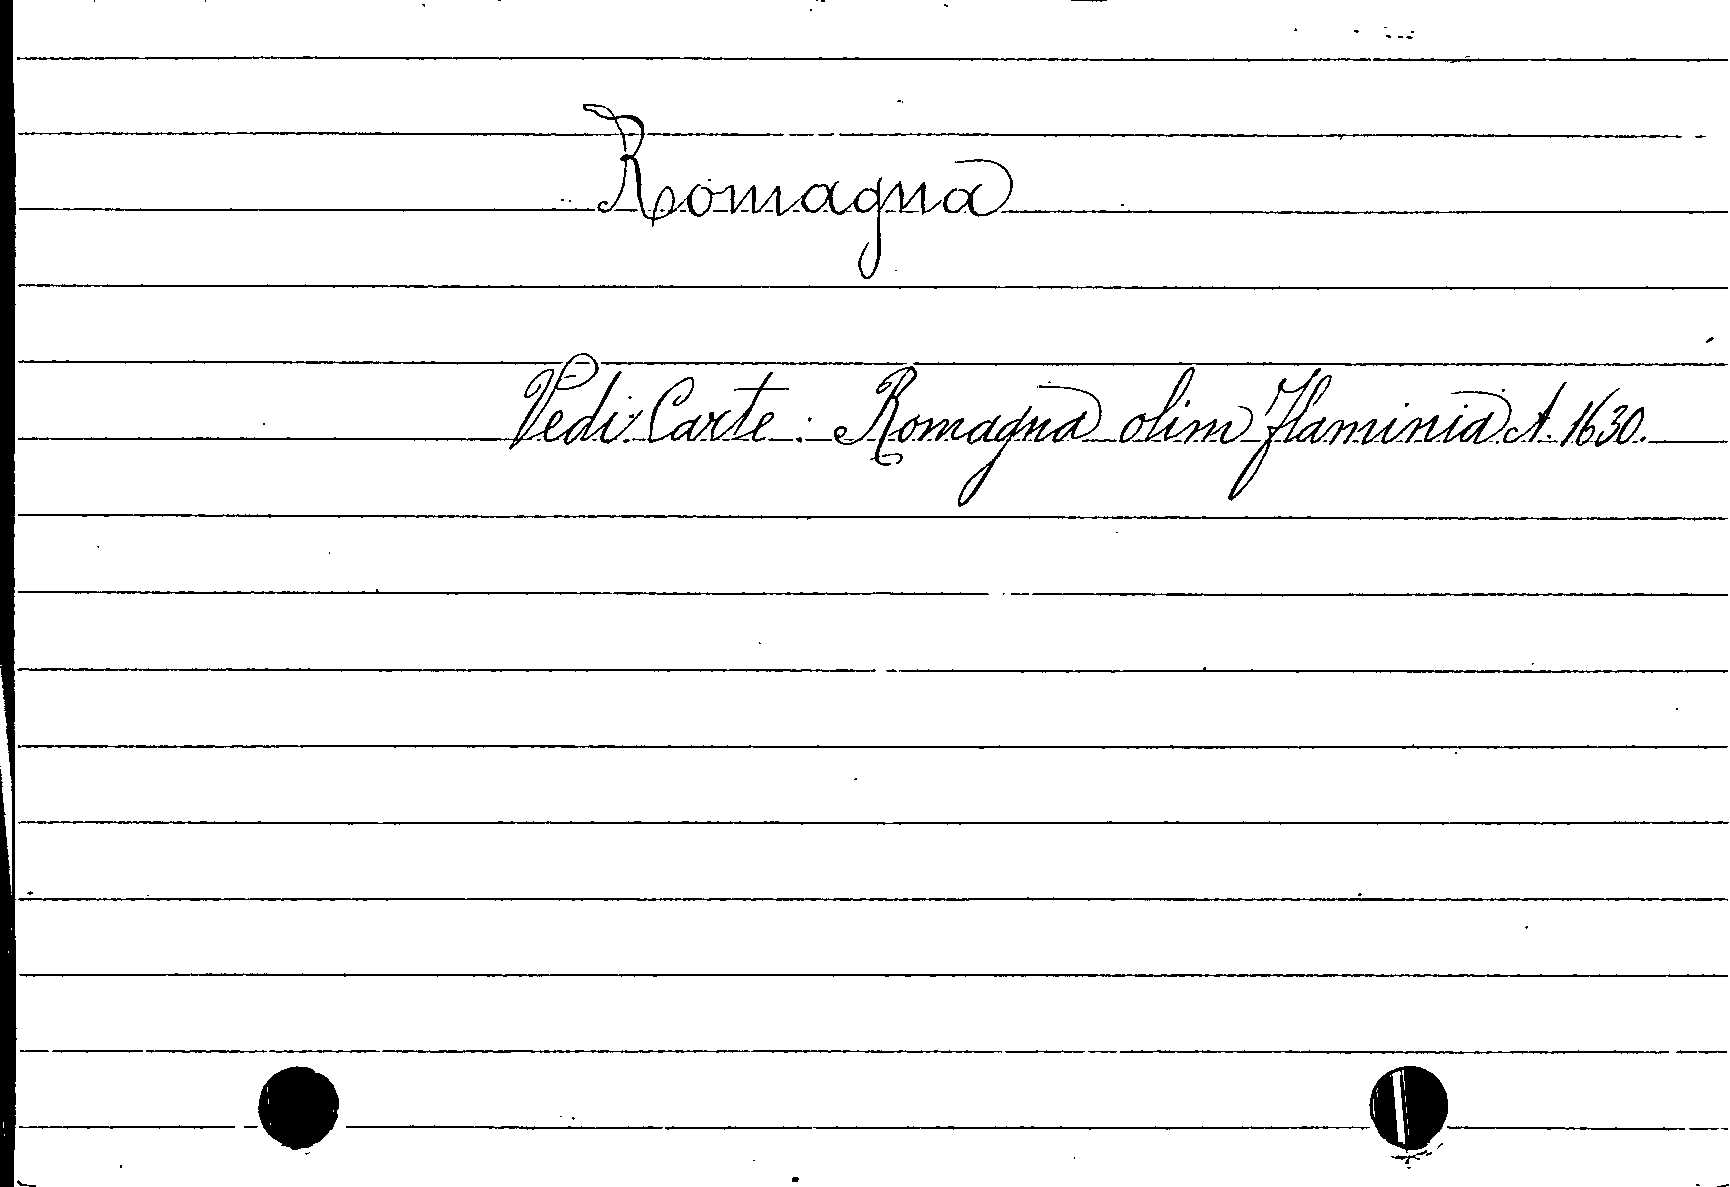 Romagna
Vedi: Carte: Romagna olim Flaminia A. 1630.